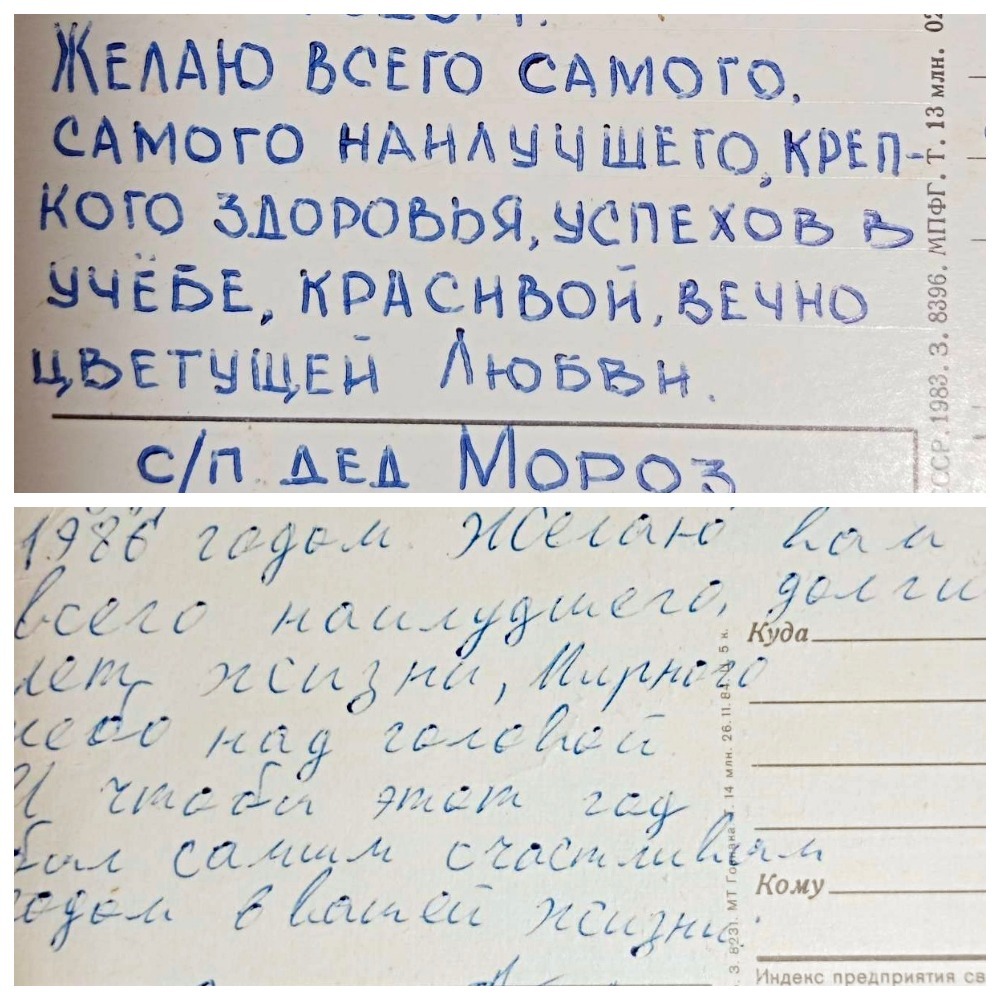 ЖЕЛАЮ ВСЕГО САМОГО,
САМОГО НАИЛУЧШЕГО, КРЕП-
КОГО ЗДОРОВЬЯ, УСПЕХОВ В
УЧЁБЕ, КРАСИВОЙ, ВЕЧНО
ЦВЕТУЩЕЙ ЛЮБВИ.
С/П ДЕД МОРОЗ
СССР. 1983. З. 8396. МПФГ. Т. 13 млн. 02
1986 годом. Желаю вам
всего наилудшего, долги
лет жизни, Мирного
небо над головой
И чтоби этот год
бил самим счастливым
годом в вашей жизни.
Куда
Кому
Индекс предприятия св
З. 8231. МТ Гознака. т. 14 млн. 26.11.84. 5 к.